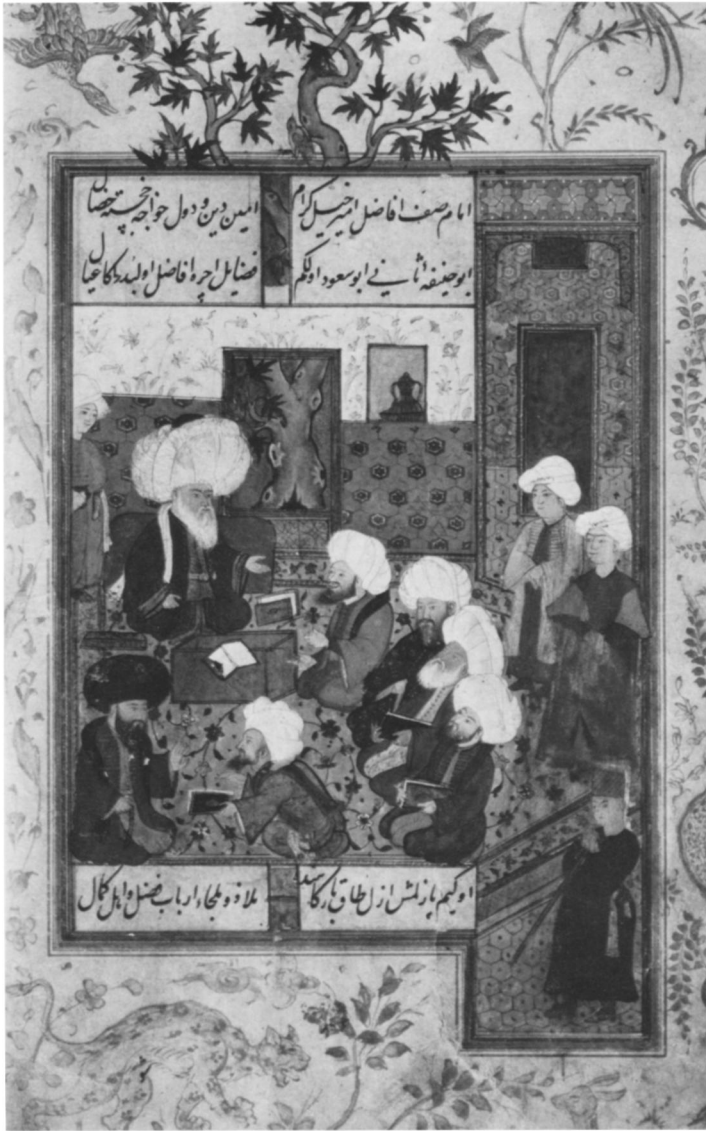 امام صف افاضل امیر خیل کرام
امین دین و دول خواجه خجسته خصال
ابو حنیفه ثانی ابو سعود اول کم
فضایل اچره افاضل اولبدر اکا عیال
اوکیم یازلمش ازل طاق بارکاهنده
ملاذ و ملجاء ارباب فضل و اهل کمال